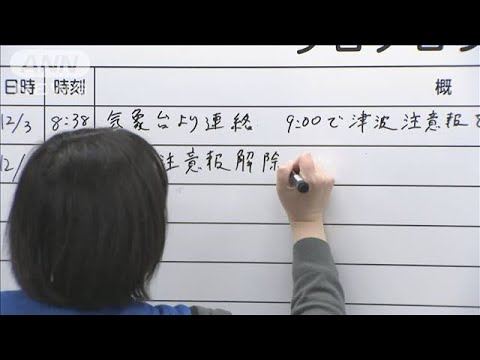 ANN
日時 時刻 概
12/3 8:38 気象台より連絡 9:00で津波注意報を
12/ 注意報解除